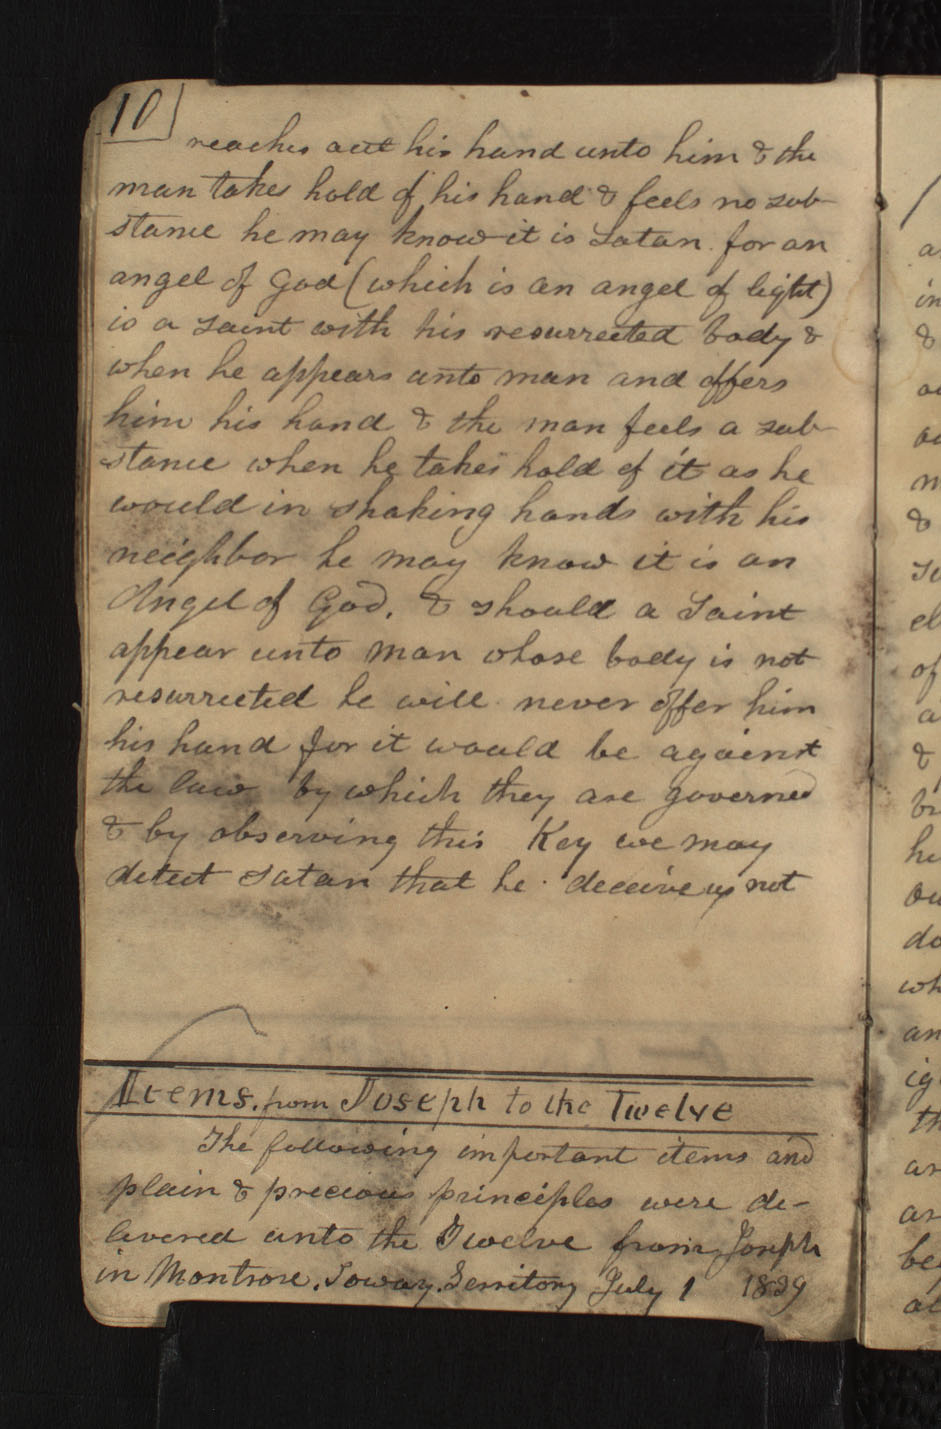 10
reaches out his hand unto him & the
man takes hold of his hand & feels no sub-
stance he may know it is Satan. for an
angel of God (which is an angel of light)
is a saint with his resurrected body &
when he appears unto man and offers
him his hand & the man feels a sub-
stance when he takes hold of it as he
would in shaking hands with his
neighbor he may know it is an
Angel of God, & should a Saint
appear unto man whose body is not
resurrected he will never offer him
his hand for it would be against
the law by which they are governed
& by observing this Key we may
detect Satan that he deceive us not
Items. from Joseph to the Twelve
The following important items and
plain & precious principles were de-
livered unto the Twelve from Joseph
in Montrose. Ioway. Territory July 1 1839
a
in
&
m
&
el
of
a
&
he
do
wh
an
ig
th
ar
ar
be